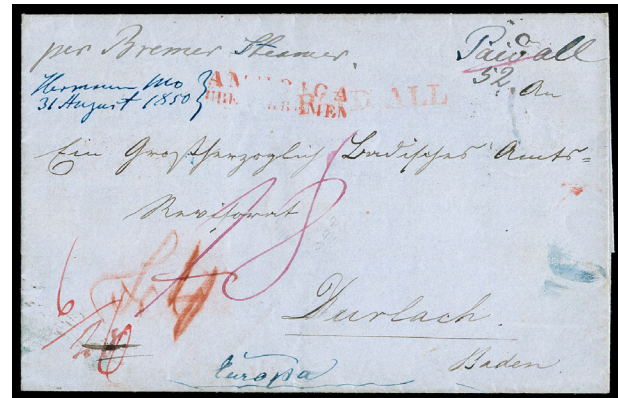 per Bremer Steamer.
Paid all
52
Hermann Mo
31 August 1850
AMERICA
ÜBER BREMEN
PAID ALL
An
Ein Großherzoglich Badisches Amts=
Revisorat
18
6
Durlach.
Baden
Europa